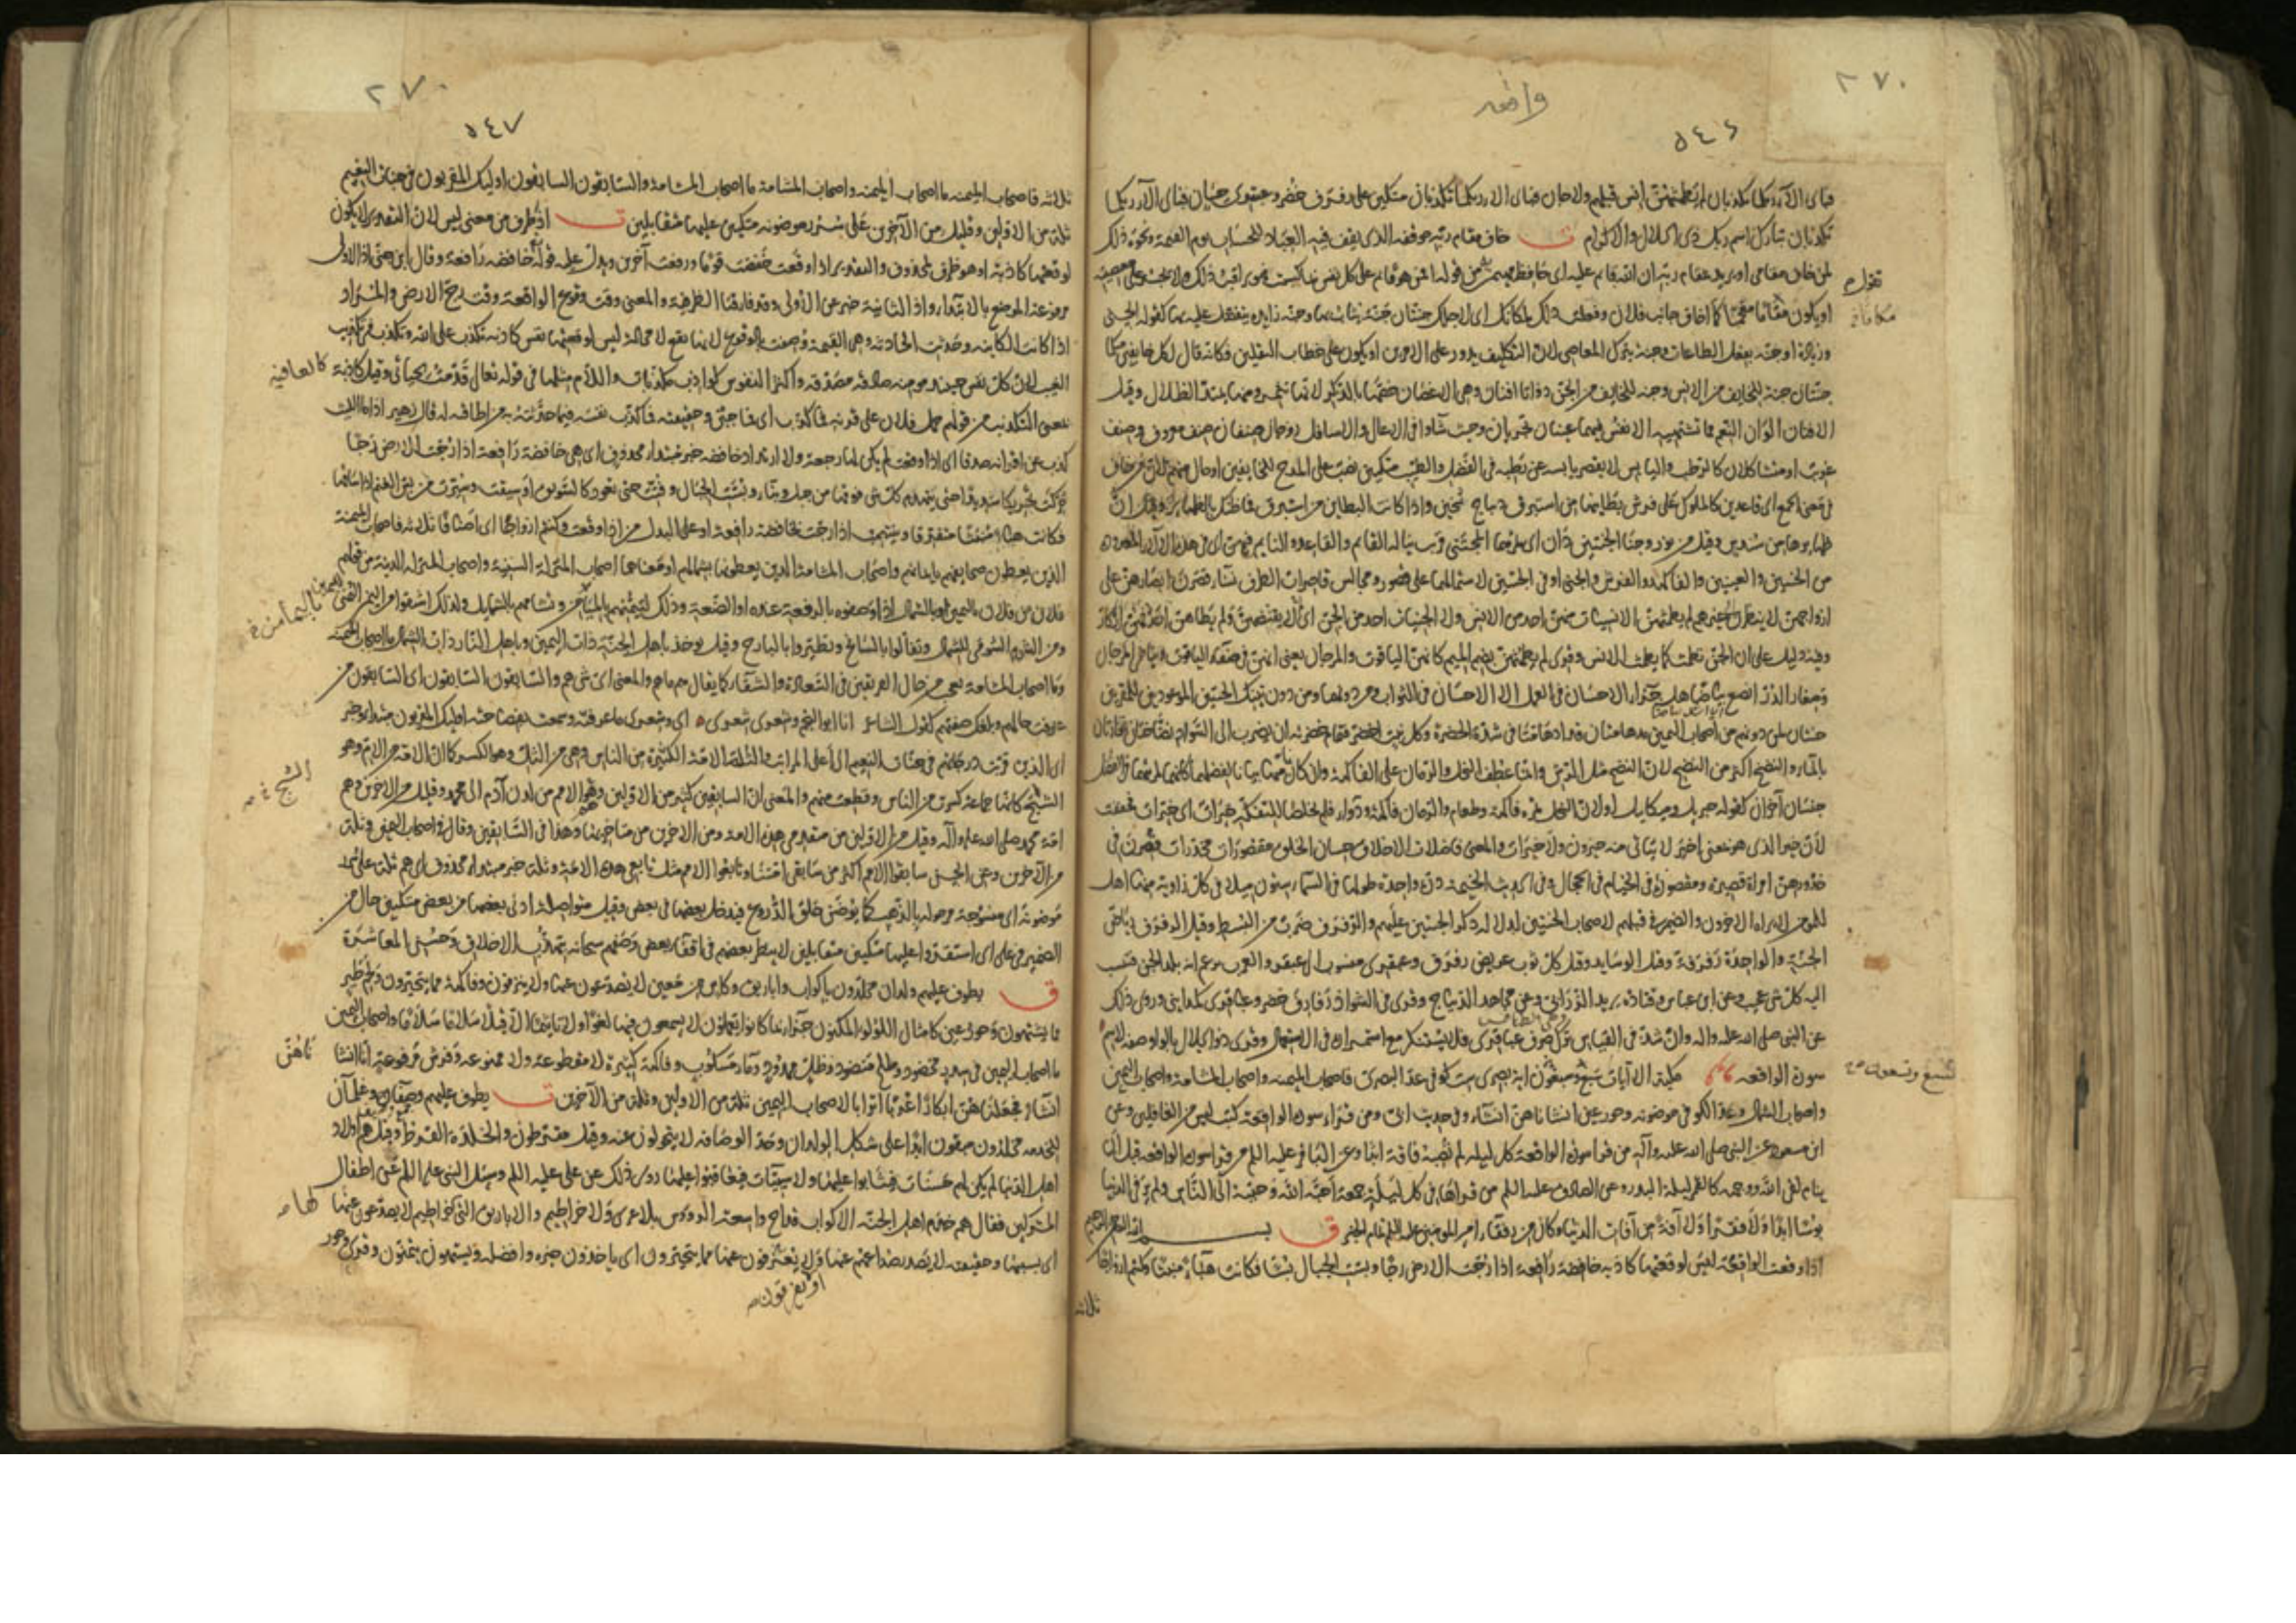 ٢٧٠
واقعه
٥٤٦
فبأي آلاء ربكما تكذبان لم يطمثهن انس قبلهم ولا جان فباى الاء ربكما تكذبان متكين على رفرف خضر وعبقرى حسان فباى الآء ربكما
تكذبان تبارك اسم ربك ذى الجلال والاكرام ت خاف مقام ربه موقفه الذى يقف فيه العباد للحساب يوم القيمة ونحوه ذلك
لمن خاف مقامى او يريد بمقام ربه ان الله قايم عليه اى حافظ مهيمن من قوله افمن هو قايم على كل نفس بما كسبت فهو يراقب ذلك فلا يجسر على معصيته
او يكون مقاما مقحما كما اخاف جانب فلان وفعلت ذلك لمكانك اى لاجلك جنتان جنة يثاب بها وجنة زايدة يتفضل عليه بها كقوله الحسنى
وزيادة او جنة بفعل الطاعات وجنة بترك المعاصى لان التكليف يدور على الامرين او يكون على خطاب الثقلين فكانه قال لكل خايفين منكما
جنتان جنة للخايف من الانس وجنة للخايف من الجن ذواتا افنان وهى الاغصان خصها بالذكر لانها تثمر ومنها يمتد الظلال وقيل
الافنان الوان النعم مما تشتهيه الانفس فيهما عينان تجريان وحيث شاوا فى الاعالى والاسافل زوجان صنفان صنف معروف وصنف
غريب او متشاكلان كالرطب واليابس لا يقصر يابسه عن رطبه فى الفضل والطيب متكين نصب على المدح للخايفين او حال منهم لان من خاف
فى معنى الجمع اى قاعدين كالملوك على فرش بطاينها من استبرق ديباج ثخين واذا كانت البطاين من استبرق فما ظنك بالظهاير وقيل ان
ظهايرها من سندس وقيل من نور وجنا الجنتين دان اى ثمرها المجتنى قريب يناله القايم والقاعد والنايم فيهن اى فى هذه الآلاء المعدودة
من الجنتين والعينين والفاكهة والفرش والجنى او فى الجنتين لاشتمالهما على قصور ومجالس قاصرات الطرف نساء قصرن ابصارهن على
ازواجهن لا ينظرن الى غيرهم لم يطمث الانسيات منهن احد من الانس ولا الجنيات احد من الجن
وفيه دليل على ان الجن تطمث كما يطمث الانس وقرى لم يطمثهن بضم الميم كانهن الياقوت والمرجان يعنى انهن فى صفاء الياقوت وبياض المرجان
وصغار الدر انصع بياضا هل جزاء الاحسان فى العمل الا الاحسان فى الثواب ومن دونهما ومن دون تينك الجنتين الموعودتين للمقربين
جنتان لمن دونهم من اصحاب اليمين مدهامتان قد ادهامتا من شدة الخضرة
بالماء والنضخ اكثر من النضح لان النضح مثل الرش وانما عطف النخل والرمان على الفاكهة وان كان منها بيانا لفضلهما
جنسان آخران كقوله جبريل وميكايل او لان النخل ثمره فاكهة وطعام والرمان فاكهة ودواء فلم يخلصا للتفكه خيرات اى خيرات فخففت
لان خير الذى هو بمعنى اخير لا يثنى منه خيرون ولا خيرات والمعنى فاضلات الاخلاق حسان الخلق مقصورات مخدرات قصرن فى
خدورهن امراة قصيرة ومقصورة فى الخيام فى الحجال وفى الحديث الخيمة درة واحدة طولها فى السماء ستون ميلا فى كل زاوية منها اهل
للمومن لا يراه الاخرون والضمير فى قبلهم لاصحاب الجنتين لدلالة ذكر الجنتين عليهم والرفرف ضرب من البسط وقيل الرفرف رياض
الجنة والواحدة رفرفة وقيل الوسايد وقيل كل ثوب عريض رفرف وعبقرى منسوب الى عبقر والعرب تزعم انه بلد الجن فينسب
اليه كل شى عجيب وعن ابن عباس وقتادة يريد الزرابى وعن مجاهد الديباج وقرى فى الشواذ رفارف خضر وعباقرى كمداينى وروى ذلك
عن النبى صلى الله عليه واله وان شذ فى القياس ترك صرف عباقرى فلا يستنكر مع استمراره فى الاستعمال وقرى ذو الجلال بالواو صفة للاسم
سورة الواقعه مكية الآيات سبع وتسعون اية بصرى ست كوفى عد البصرى فاصحاب الميمنه واصحاب المشامة واصحاب اليمين
واصحاب الشمال وعد الكوفى موضونه وحور عين انشاناهن انشاء وفى حديث ابى ومن قراء سورة الواقعة كتب ليس من الغافلين وعن
ابن مسعود عن النبى صلى الله عليه وآله من قرا سورة الواقعة كل ليلة لم تصبه فاقة ابدا وعن الباقر عليه السلم من قرا سورة الواقعة قبل ان
ينام لقى الله ووجهه كالقمر ليلة البدر وعن الصادق عليه السلم من قراها فى كل ليلة جمعة احبه الله وحببه الى الناس ولم ير فى الدنيا
بوسا ابدا ولا فقرا ولا آفة من آفات الدنيا وكان من رفقاء امير المومنين عليه السلم ق بسم الله الرحمن الرحيم
اذا وقعت الواقعة ليس لوقعتها كاذبه خافضة رافعة اذا رجت الارض رجا وبست الجبال بسا فكانت هباء منبثا وكنتم ازواجا
ثلاثه
تسع وتسعون
٢٧٠
٥٤٧
ثلاثه فاصحاب الميمنه ما اصحاب الميمنه واصحاب المشامة ما اصحاب المشامة والسابقون السابقون اوليك المقربون فى جنات النعيم
ثلة من الاولين وقليل من الآخرين على سرر موضونه متكين عليها متقابلين ت اذ ظرف من معنى ليس لان التقدير لا يكون
لوقعتها كاذبة او هو ظرف لمحذوف والتقدير اذا وقعت خفضت قوما ورفعت آخرين ويدل عليه قوله خافضة رافعة وقال ابن جنى اذا الاولى
مرفوعة الموضع بالابتداء واذا الثانية خبر عن الاولى وقد فارقتا الظرفية والمعنى وقت وقوع الواقعة وقت رج الارض
اذا كانت الكاينة وحدثت الحادثه وهى القيمة وصفت بالوقوع لانها تقع لا محالة ليس لوقعتها نفس كاذبه تكذب على الله وتكذب فى تكذيب
الغيب لان كل نفس حينيذ مومنه صادقه مصدقه واكثر النفوس كواذب مكذبات واللام مثلها فى قوله تعالى قدمت لحياتى وقيل كاذبة كالعافية
بمعنى التكذيب من قولهم حمل فلان على قرنه فما كذب اى فما جبن وحقيقته فما كذب نفسه فيما حدثته به من اطاقته له قال زهير اذا ما الليث
كذب عن اقرانه صدقا اى اذا وقعت لم يكن لها رجعة ولا ارتداد خافضه خبر مبتداء محذوف اى هى خافضة رافعة اذا رجت الارض رجا
حركت تحريكا شديدا حتى ينهدم كل شى فوقها من جبل وبناء وبست الجبال وفتت حتى تعود كالسويق او سيقت وسيرت من بس الغنم اذا ساقها
فكانت هباء منبثا متفرقا وينتصب اذا رجت بخافضة رافعة او على البدل من اذا وقعت وكنتم ازواجا اى اصنافا ثلاثه فاصحاب الميمنة
الذين يعطون صحايفهم بايمانهم واصحاب المشامة الذين يعطونها بشمايلهم او معناهما اصحاب المنزلة السنية واصحاب المنزلة الدنية من قولهم
فلان من فلان باليمين او بالشمال اذا وصفوه بالرفعة عنده او الضعة وذلك لتيمنهم بالميامن وتشامهم بالشمايل ولذلك اشتقوا من اليمين اليمن
ومن الشوم الشومى للشمال وتفالوا بالسانح وتطيروا بالبارح وقيل يوخذ باهل الجنة ذات اليمين وباهل النار ذات الشمال ما اصحاب الميمنة
وما اصحاب المشامة تعجيب من حال الفريقين فى السعادة والشقاوة كما يقال هم ما هم والمعنى اى شى هم والسابقون السابقون اى السابقون من
عرفت حالهم وبلغك صفتهم كقول الشاعر انا ابو النجم وشعرى شعرى اى وشعرى ما عرفته وسمعت بفصاحته اوليك المقربون مبتداء وخبر
اى الذين قربت درجاتهم فى جنات النعيم الى اعلى المراتب والثلة الامة الكثيرة من الناس وهى من الثل وهو الكسر كما ان الامة من الام وهو
الشج كانها جماعة كسرت من الناس وقطعت منهم والمعنى ان السابقين كثير من الاولين وهم الامم من لدن آدم الى محمد وقليل من الاخرين وهم
امة محمد صلى الله عليه وآله وقيل من الاولين من متقدمى هذه الامة ومن الاخرين من متاخريها وهذا فى السابقين وقال فى اصحاب اليمين وثلة
من الآخرين وعن الحسن سابقوا الامم اكثر من سابقى امتنا وتابعوا الامم مثل تابعى هذه الامة وثلة خبر مبتداء محذوف اى هم ثلة على سرر
موضونة اى منسوجة مرمولة بالذهب كما يوضن حلق الدروع فيدخل بعضها فى بعض وقيل متواصلة ادنى بعضها من بعض متكين حال من
الضمير فى على اى استقروا عليها متكين متقابلين لا ينظر بعضهم فى اقفاء بعض وصفهم سبحانه بتهذيب الاخلاق وحسن المعاشرة
ق يطوف عليهم ولدان مخلدون باكواب واباريق وكاس من معين لا يصدعون عنها ولا ينزفون وفاكهة مما يتخيرون ولحم طير
مما يشتهون وحور عين كامثال اللولو المكنون جزاء بما كانوا يعملون لا يسمعون فيها لغوا ولا تاثيما الا قيلا سلاما سلاما واصحاب اليمين
ما اصحاب اليمين فى سدر مخضود وطلح منضود وظل ممدود وماء مسكوب وفاكهة كثيرة لا مقطوعة ولا ممنوعه وفرش مرفوعة انا انشاناهن
انشاء فجعلناهن ابكارا عربا اترابا لاصحاب اليمين ثلة من الاولين وثلة من الآخرين ت يطوف عليهم وصفاء وغلمان
للخدمة مخلدون مبقون ابدا على شكل الولدان وحد الوصافه لا يتحولون عنه وقيل مقرطون والخلدة القرط وقيل هم اولاد
اهل الدنيا لم يكن لهم حسنات فيثابوا عليها ولا سييات فيعاقبوا عليها روى ذلك عن على عليه السلم وسيل النبى عليه السلم عن اطفال
المشركين فقال هم خدم اهل الجنة الاكواب قداح واسعة الرووس بلا عرى ولا خراطيم والاباريق التى لها خراطيم لا يصدعون عنها
اى بسببها وحقيقته لا يصدر صداعهم عنها ولا ينزفون عنها مما يتخيرون اى ياخذون خيره وافضله ويشتهون يتمنون وقرى وحور